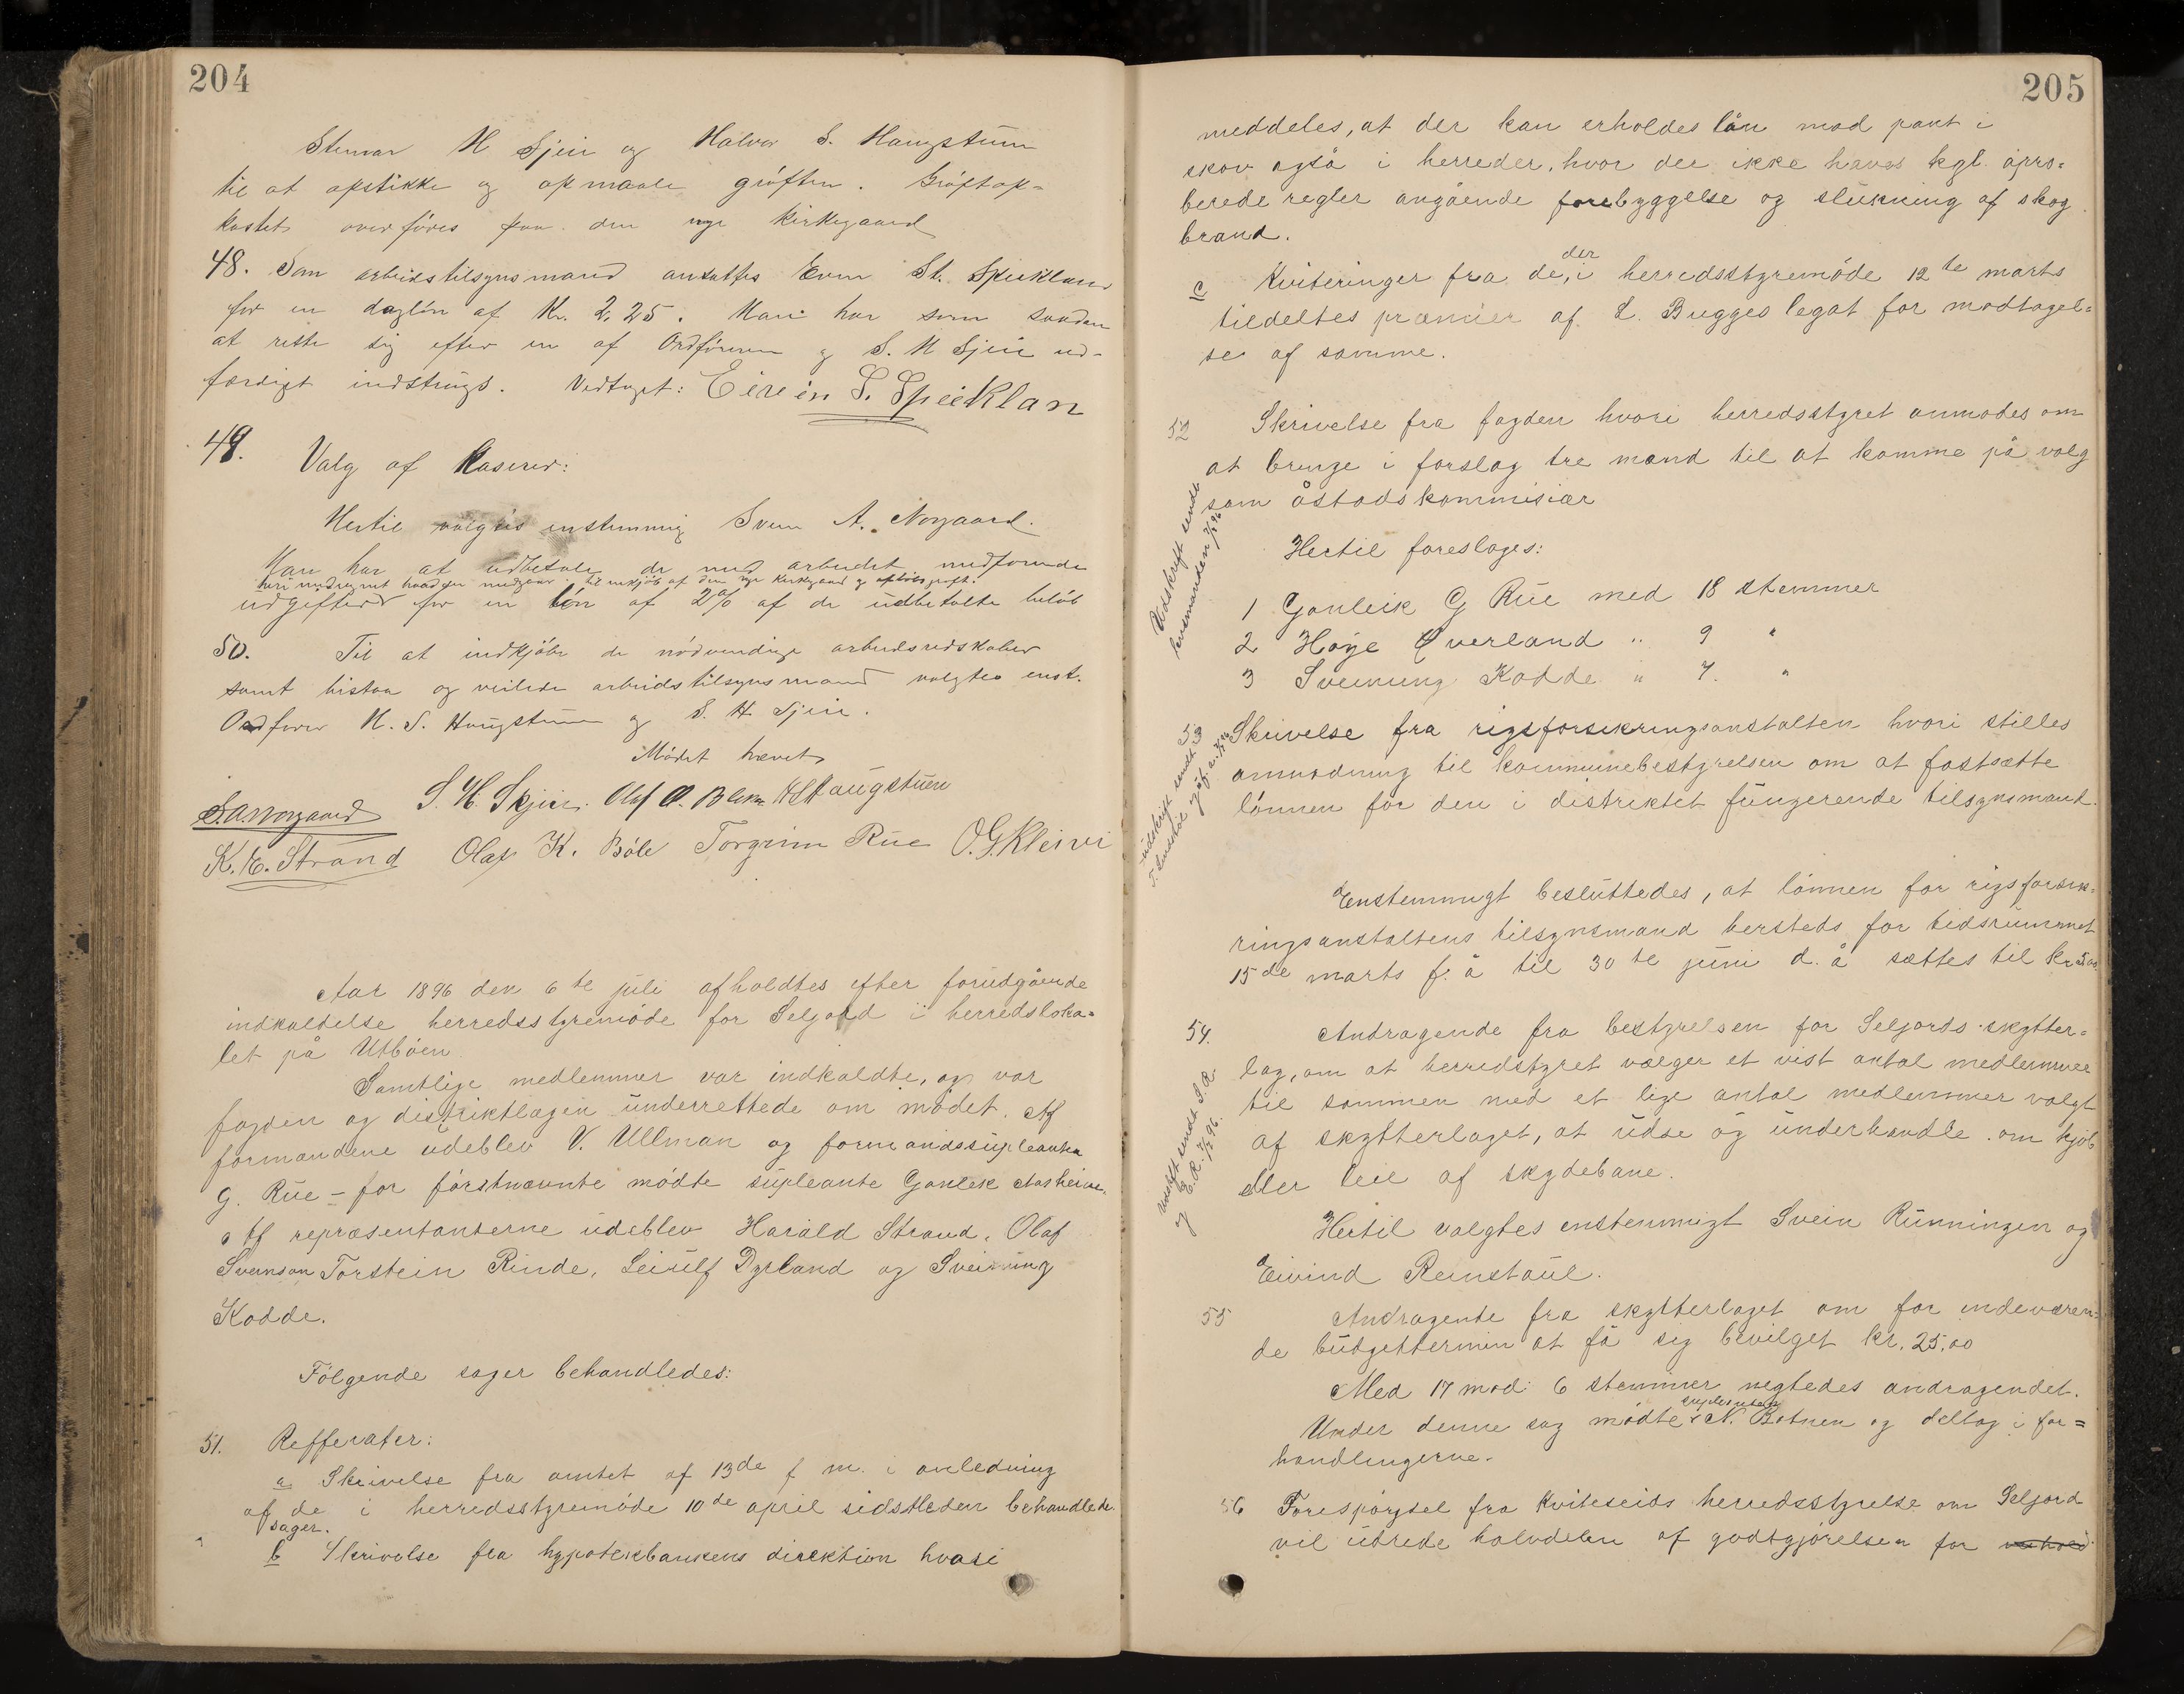 204
Steinar H Sjein og Halvor S. Haugstuen
til at opstikke og opmaale grøften. Grøftop-
kastet overføres paa den nye Kirkegaard
48. Som arbeidstilsynsmand ansattes Even St. Speeklan
for en dagløn af Kr. 2,25. Han har som saadan
at rette sig efter en af Ordføreren og S. H Sjein ud-
færdiget instrugs. Vedtaget: Eivein S. Speeklan
49. Valg af Kaserer:
Hertil valgtes enstemmig Svein A. Norgaard.
Han har at udbetale de med arbeidet medførende
heri indregnet hvad der medgaar til inkjøb af den nye Kirkegaard og
udgifter for en løn af 2% af de udbetalte beløb
50. Til at indkjøbe de nødvendige arbeidsredskaber
samt bistaa og veilede arbeidstilsynsmand valgtes enst.
Ordfører H. S. Haugstuen og S. H Sjein.
Mødet hævet
S.A. Norgaard S. H. Skjein. Olaf O. Blem HSHaugstuen
K. E. Strand Olaf K. Bøle Torgrim Rue O.G.Kleivi
Aar 1896 den 6te juli afholdtes efter forudgående
indkaldelse herredsstyremøde for Seljord i herredsloka-
let på Utbøen.
Samtlige medlemmer var indkaldte, og var
fogden og distriktlægen underrettede om mødet. Af
formændene udeblev V. Ullman og formandssupleanten
G. Rue – for førstnævnte mødte supleante Gonleik Aasheim.
Af repræsentanterne udeblev Harald Strand, Olaf
Sveinson Torstein Rinde, Leiulf Dyrland og Sveinung
Kodde.
Følgende sager behandledes:
51. Refferater:
a Skrivelse fra amtet af 13de f m. i anledning
af de i herredsstyremøde 10de april sidstleden behandlede
sager.
b Skrivelse fra hypotekbankens direktion hvori
205
meddeles, at der kan erholdes lån mod pant i
skov også i herreder, hvor der ikke haves kgl. apro-
berede regler angående forebyggelse og slukning af skog
brand.
c Kviteringer fra de, der i herredsstyremøde 12te marts
tildeltes præmier af L. Bugges legat for modtagel-
se af samme.
52 Skrivelse fra fogden hvori herredsstyret anmodes om
at bringe i forslag tre mænd til at komme på valg
som åstadskommisiær
Udskrift sendt
lensmanden
Hertil foreslages:
1 Gonleik G Rue med 18 stemmer
2 Høye Øverland " 9 "
3 Sveinung Kodde " 7. "
53 Skrivelse fra rigsforsikringsanstalten hvori stilles
anmodning til kommunebestyrelsen om at fastsætte
lønnen for den i distriktet fungerende tilsynsmand.
udskrift sendt
Enstemmigt besluttedes, at lønnen for rigsforsik-
ringsanstaltens tilsynsmand hersteds for tidsrummet
15de marts f. å til 30te juni d. å sættes til kr 5,00
54. Andragende fra bestyrelsen for Seljords skytter-
lag, om at herredstyret vælger et vist antal medlemmer
til sammen med et lige antal medlemmer valgt
af skytterlaget, at udse og underhandle om kjøb
eller leie af skydebane.
udskrift sendt S. R.
og E. R.
Hertil valgtes enstemmigt Svein Runningen og
Eivind Reinstaul.
55 Andragende fra skytterlaget om for indeværen-
de budgettermin at få sig bevilget kr. 25,00
Med 17 mod 6 stemmer negtedes andragendet.
Under denne sag mødte supleanten N. Botnen og deltog i for=
handlingerne.
56 Forespørgsel fra Kviteseids herredsstyrelse om Seljord
vil utrede halvdelen af godtgjørelsen for